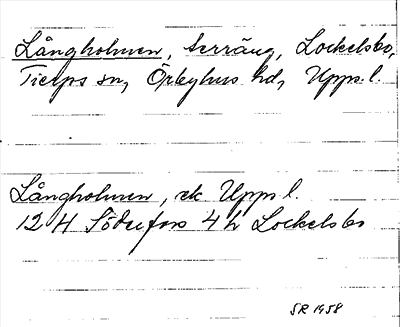 Långholmen, terräng, Lockelsbo,
Tierps sn, Örbyhus hd, Upps. l.
Långholmen, ek Upps l.
12 H Söderfors 4 h Lockelsbo
SR 1958